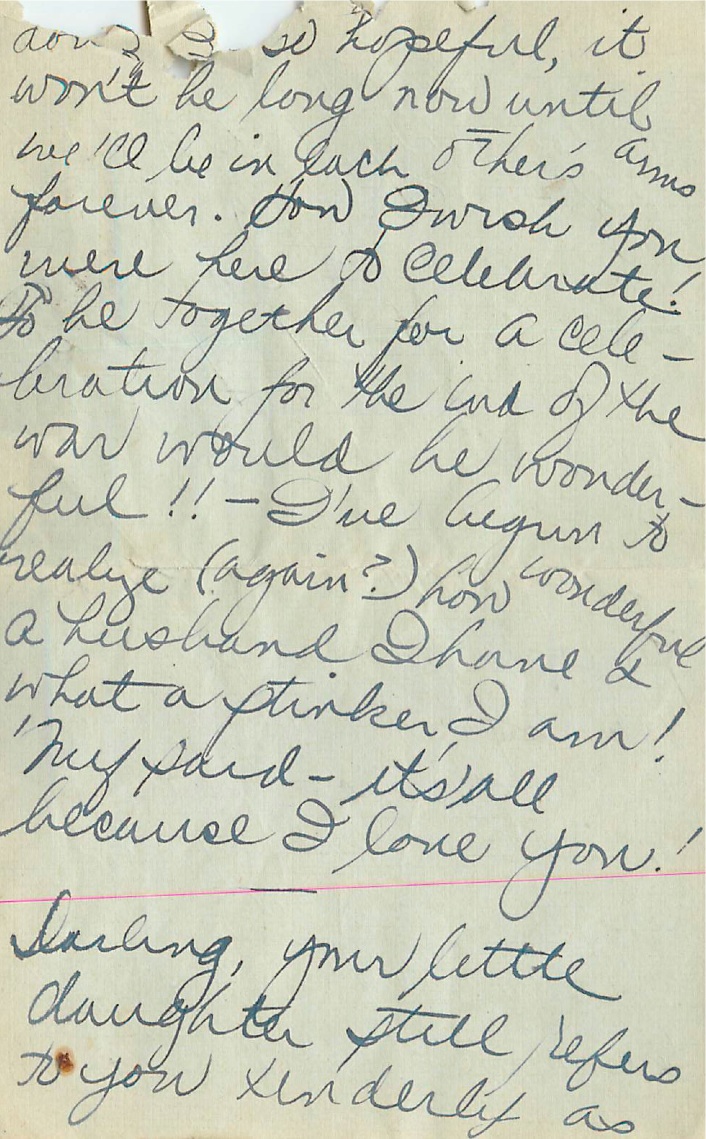 so hopeful, it
won't be long now until
we'll be in each other's arms
forever. How I wish you
were here to celebrate!
To be together for a cele-
bration for the end of the
war would be wonder-
ful!! - I've begun to
realize (again?) how wonderful
a husband I have &
what a stinker I am!
'Nuf said - it's all
because I love you!
Darling, your little
daughter still refers
to you tenderly as